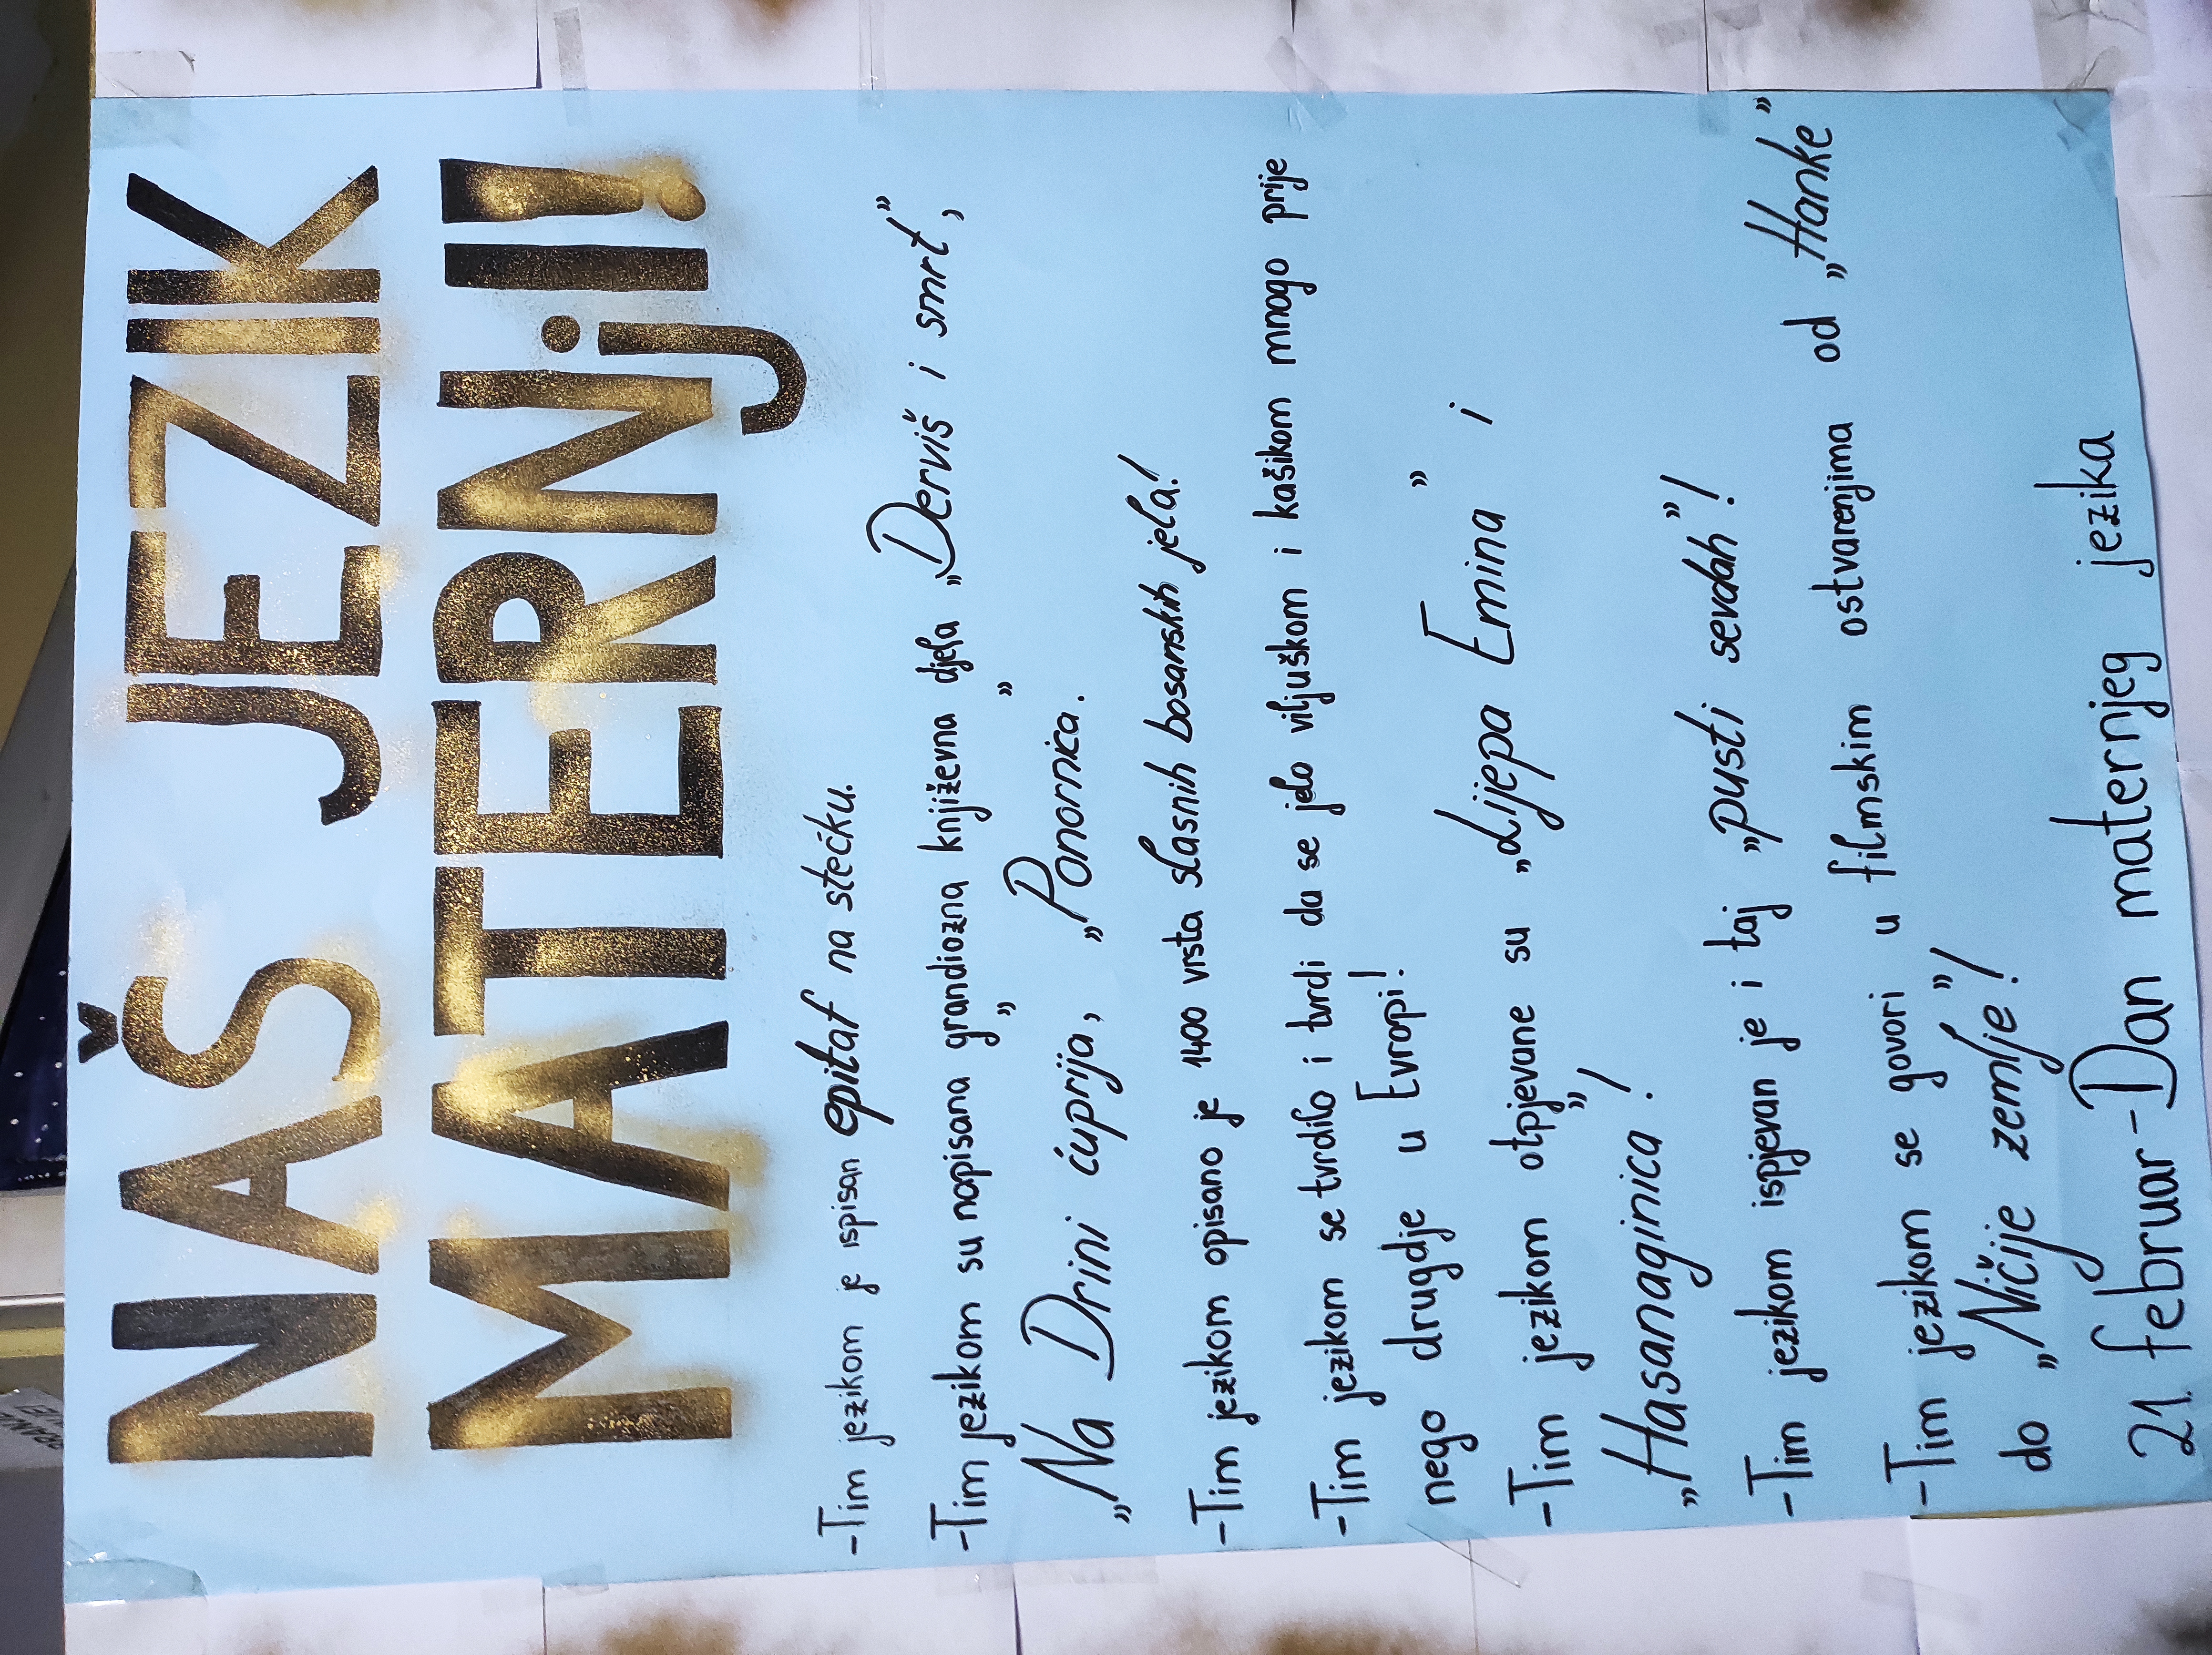 NAŠ JEZIK
MATERNjI!
-Tim jezikom je ispisan epitaf na stećku.
-Tim jezikom su napisana grandiozna književna djela „Derviš i smrt”,
„Na Drini ćuprija”, „Ponornica”.
-Tim jezikom opisano je 1400 vrsta slasnih bosanskih jela!
-Tim jezikom se tvrdilo i tvrdi da se jelo viljuškom i kašikom mnogo prije
nego drugdje u Evropi!
-Tim jezikom otpjevane su „Lijepa Emina” i
„Hasanaginica”!
-Tim jezikom ispjevan je i taj „pusti sevdah”!
-Tim jezikom se govori u filmskim ostvarenjima od „Hanke”
do „Ničije zemlje”!
21. februar-Dan maternjeg jezika